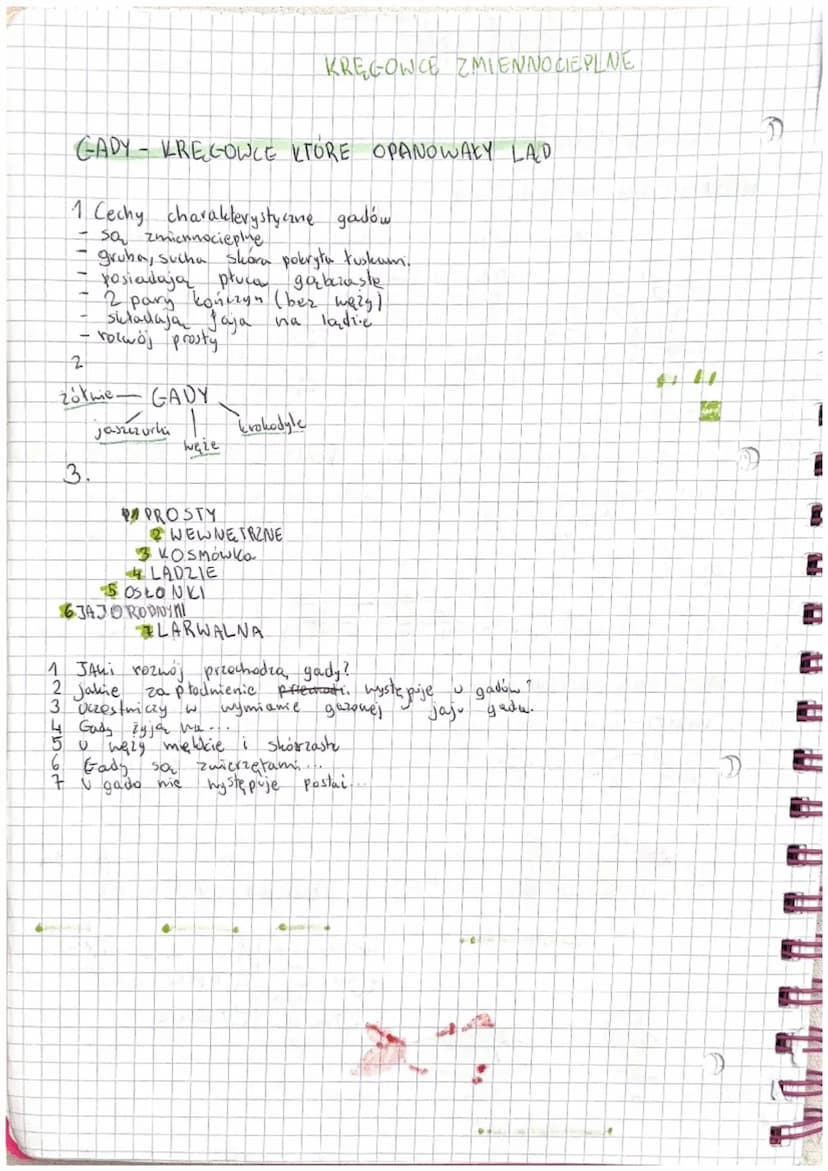 KRĘGOWCE ZMIENNOCIEPLNE
GADY - KRĘGOWCE KTÓRE OPANOWAŁY LĄD
1 Cechy charakterystyczne gadów
- są zmiennocieplne
- gruba, sucha skóra pokryta łuskami.
- posiadają płuca gąbczaste
- 2 pary kończyn (bez węży)
- składają jaja na lądzie
- rozwój prosty
2
żółwie — GADY
jaszczurki krokodyle
węże
3.
1 PROSTY
2 WEWNĘTRZNE
3 KOSMÓWKA
4 LĄDZIE
5 OSŁONKI
6 JAJORODNYMI
7 LARWALNA
1 JAki rozwój przechodzą gady?
2 jakie zapłodnienie występuje u gadów?
3 Uczestniczy w wymianie gazowej w jaju gada.
4 Gady żyją na...
5 U węży miękkie i skórzaste
6 Gady są zwierzętami...
7 U gado nie występuje postać...